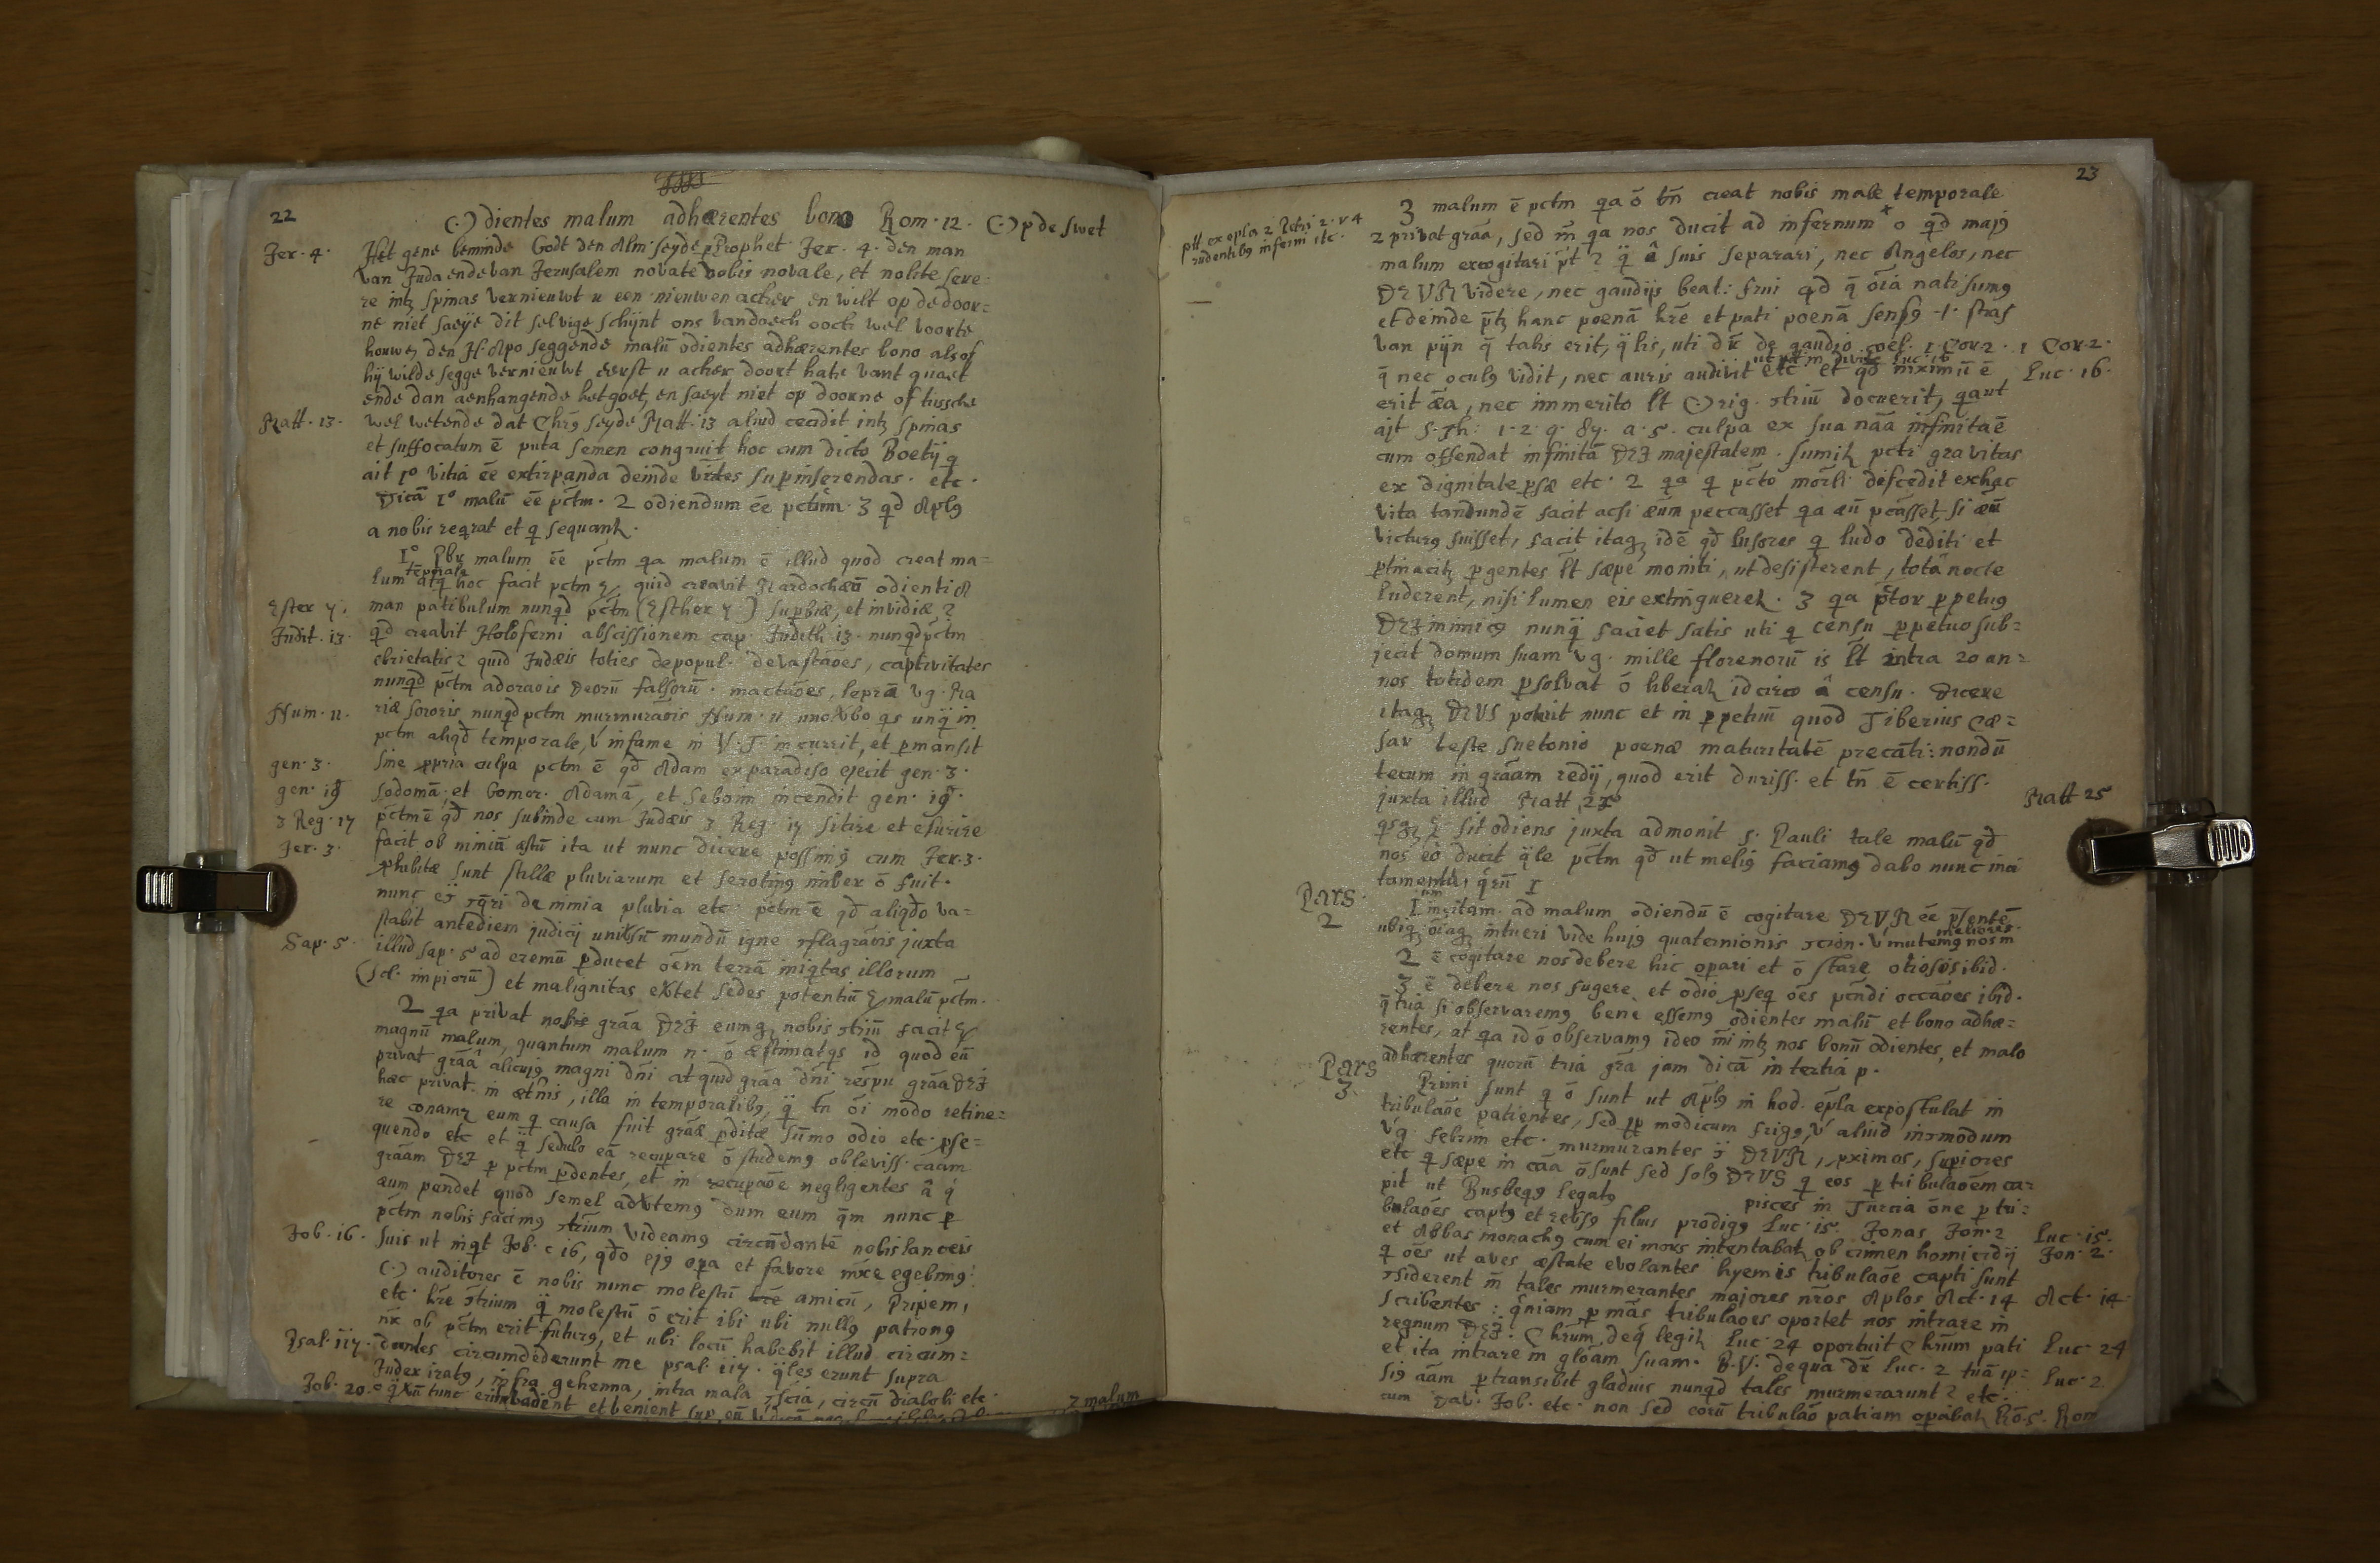 22
(·)dientes malum adhærentes bono Rom· 12· (·) p de swet
Jer· 4· Het gene beminde Godt den Alm· seyde p Prophet Jer· 4· den man
van Juda ende van Jerusalem novate vobis novale, et nolite sere=
re intz spinas vernieuwt u een nieuwen acker en wilt op de door=
ne niet saeye dit selvige schijnt ons vandaech ooch wel voorte
houwen den H· Apo seggende malū odientes adhærentes bono alsof
hij wilde segge vernieuwt eerst u acker doort hate vant quaet
ende dan aenhangende het goet, en saeyt niet op doorne of
Matt· 13· wel wetende dat Chrs seyde Matt· 13 aliud cecidit intz spinas
et suffocatum ē puta semen congruit hoc cum dicto Boetij q
ait 1º vitia ēe extirpanda deinde virtes superinserendas· etc·
Dicā 1º malū ēe pctm· 2 odiendum ēe pctum· 3 qd Apls
a nobis reqrat et q sequant·
1º malum ēe pctm qa malum ē illud quod creat ma=
temporale
lum atq hoc facit pctm quid creavit Mardochæū odienti A
Ester 7· man patibulum nunqd pctm (Esther 7) supbiæ, et invidiæ?
Judit· 13· qd creavit Holoferni abscissionem cap Judith 13· nunqd pctm
ebrietatis? quid Judæis toties depopul· devastāoes, captivitates
nunqd pctm adoraois Deorū falsorū· mactāoes, leprā vg· Ma
Num· 11· riæ sororis nunqd pctm murmurāois Num· 11 uno vbo qs unq in
pctm aliqd temporale, v infame in V·T· incurrit, et pmansit
gen· 3· sine ppria culpa pctm ē qd Adam ex paradiso ejecit gen· 3·
gen· 19 sodomā et Gomor· Adamā, et Seboim incendit gen· 19·
3 Reg· 17 pctm ē qd nos subinde cum Judæis 3 Reg· 17 sitire et esurire
Jer· 3· facit ob nimiū æstū ita ut nunc dicere possimg cum Jer· 3·
phibitæ sunt stillæ pluviarum et serotings imber ō fuit·
nunc de nimia pluvia etc· pctm ē qd aliqdo va=
stabit antediem judicij univsū mundū igne cflagrāois juxta
Sap· 5· illud sap· 5 ad eremū pducet ōem terrā iniqtas illorum
(scl· impiorū) et malignitas evtet sedes potentiū malū pctm·
2 qa privat nobis grāa DEI eumq nobis ctriū facit
magnū malum, quantum malum n· ō æstimat qs id quod eū
privat grāa alicujs magni dni at quid grāa dni respu grāa DEI
hæc privat in ætnis, illa in temporalibs, q tn ōi modo retine=
re conamr eum q causa fuit grāæ pditæ sūmo odio etc· pse=
quendo etc et q sedulo eā recupare ō studemg obleviss· cāam
grāam DEI p pctm pdentes, et in recupāoe negligentes â q
æum pendet quod semel advtemg dum eum qm nunc p
pctm nobis facimg ctrium videamg circūdantē nobis lanceis
Job· 16· suis ut inqt Job· c 16, qdo ejs opa et favore mxe egebimg·
(·) auditores ē nobis nunc molestū amicū, Pripem,
etc· hre ctrium q molestū ō erit ibi ubi nulls patrong
nr ob pctm erit futurs, et ubi locū habebit illud circum=
Psal· 117· dantes circumdederunt me psal· 117· qles erunt supra
Judex irats, infra gehenna, intra mala cscia, circū diaboli etc·
Job· 20· tunc vadent et venient sup eū
3 malum
23
3 malum ē pctm qa ō tn creat nobis male temporale
ptt ex epla 2 Petri 2· v 4
rudentibs inferni etc·
2 privat grāa, sed m qa nos ducit ad infernum o qd majs
malum excogitari pt? q â suis separari, nec Angelos, nec
DEUM videre, nec gaudijs beat: frui qd q ōia nati sums
et deinde ptz hanc poenā hre et pati poenā senss ·i· stras
van pijn q talis erit, qlis, uti dr de gaudio coel· 1 Cor· 2· 1 Cor· 2·
ut ptt in divite Luc· 16
q nec oculs vidit, nec auris audivit etc et qd maximū ē Luc· 16·
erit æa, nec immerito lt Orig· ctriū docuerit, qaut
ait S· Th: 1· 2· q· 87· a· 5· culpa ex sua nāa infinita ē
cum offendat infinitā DEI majestatem· sumit pcti gravitas
ex dignitate psæ etc· 2 qa q pcto mōrli discedit exhac
vita tandundē facit acsi æum peccasset qa æū pcasset, si æū
victurs fuisset, facit itaq idē qd lusores q ludo dediti et
ptinacitz pgentes lt sæpe moniti, ut desisterent, totā nocte
luderent, nisi lumen eis extingueret· 3 qa ptor ppetus
DEI inimics nunq faciet satis uti q censu ppetuo sub=
jecit domum suam vg· mille florenorū is lt intra 20 an=
nos totidem psolvat ō liberat idcirco â censu· Dicere
itaq DEUS poterit nunc et in ppetuū quod Tiberius Cæ=
sar teste Suetonio poenæ maturitatē precāti: nondū
tecum in grāam redij, quod erit duriss· et tn ē certiss·
juxta illud Matt 25 Matt 25
sit odiens juxta admonit S· Pauli tale malū qd
nos eō ducit qle pctm qd ut melis faciamg dabo nunc inci
tamenta, qrū 1
Pars
2
1um incitam· ad malum odiendū ē cogitare DEUM ēe psentē
ubiq ōiaq intueri vide hujs quaternionis ccion· v mutemg nos in
meliores·
2 ē cogitare nos debere hic opari et ō stare otiosos ibid·
3 ē debere nos fugere et odio pseq ōes pcndi occāoes ibid·
q tria si observaremg bene essemg odientes malū et bono adhæ=
rentes, at qa id ō observamg ideo mi intz nos bonū odientes, et malo
adhærentes quorū tria gra jam dicā in tertia p·
Pars
3·
Primi sunt q ō sunt ut Apls in hod· epla expostulat in
tribulāoe patientes, sed pp modicum frigs, v aliud incmodum
vg· febrim etc· murmurantes c DEUM, pximos, supiores
etc q sæpe in cāa ō sunt sed sols DEUS q eos p tribulaōem ca=
pit ut Busbeqs legats pisces in Turcia ōne p tri=
bulaōes capts et revss filius prodigs Luc· 15· Jonas Jon· 2 Luc· 15·
et Abbas monachs cum ei mors intentabat ob crimen homicidij Jon· 2·
q ōes ut aves æstate evolantes hyemis tribulaōe capti sunt
csiderent m tales murmerantes majores nros Aplos Act· 14 Act· 14·
scribentes: qniam p mās tribulaōes oportet nos intrare in
regnum DEI· Chrum, deq legit Luc· 24 oportuit Chrum pati Luc· 24
et ita intrare in glōam suam· B·V· de qua dr Luc· 2 tuā ip= Luc· 2
sis āam ptransibit gladius nunqd tales murmerarunt? etc·
cum Dav· Job· etc· non sed eorū tribulāo patiam opabat Ro· 5· Rom